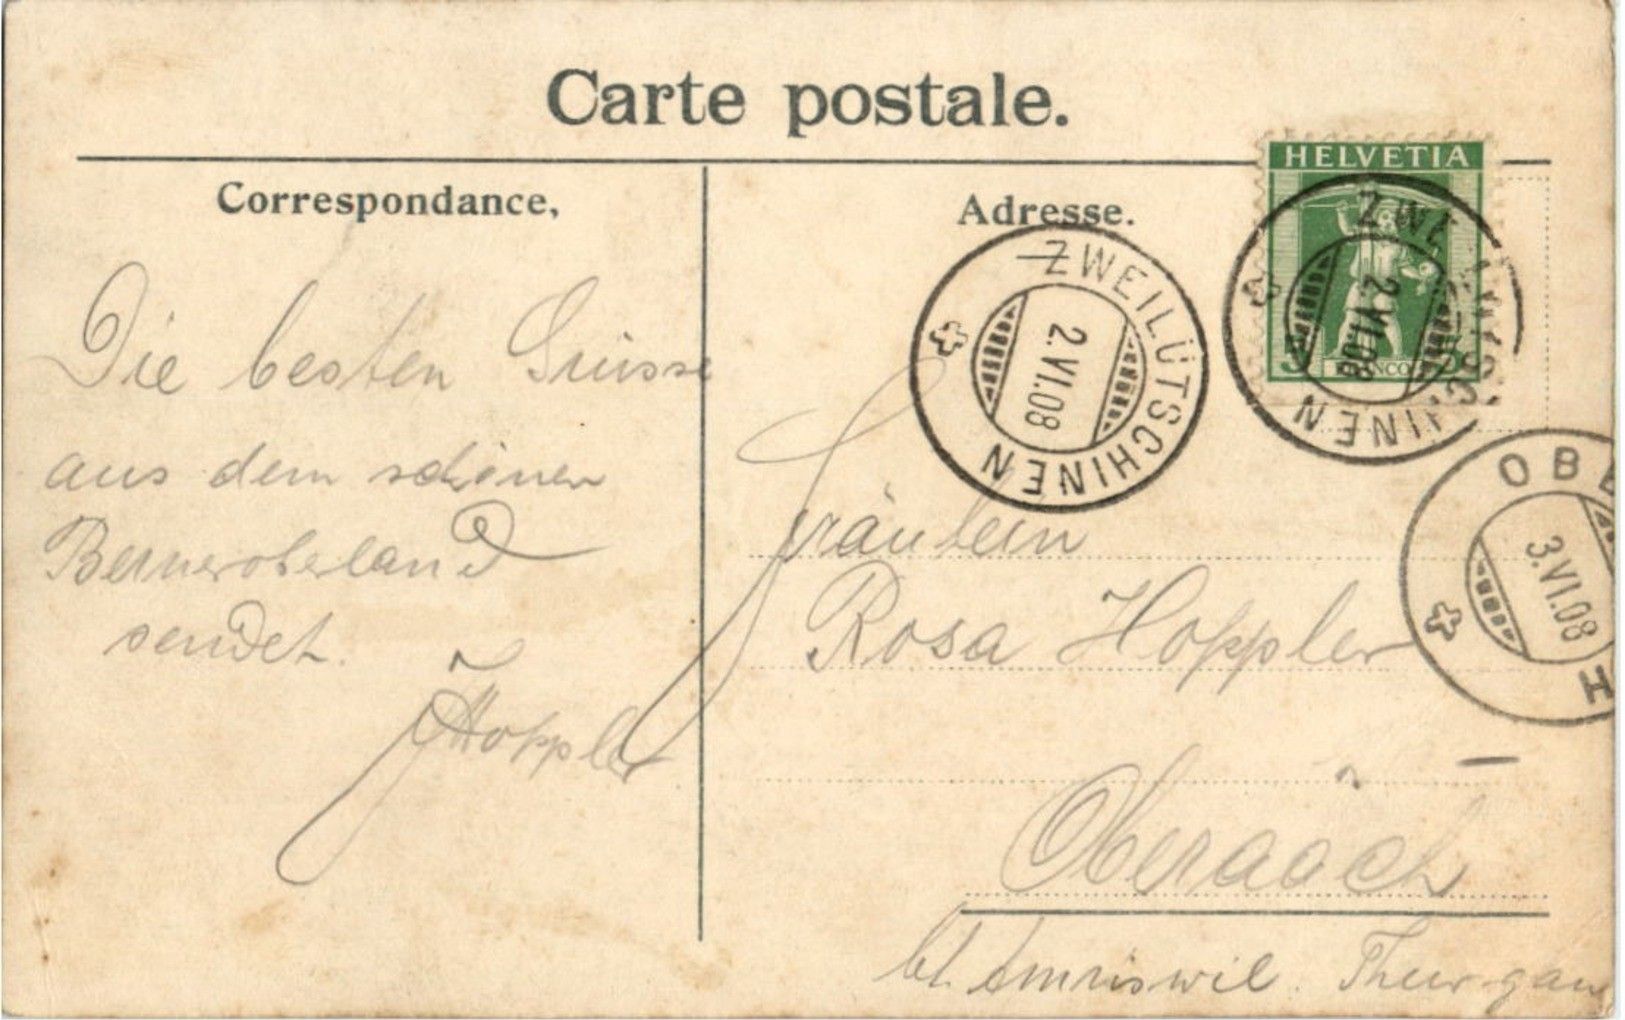 Carte postale.
Correspondance,
Die besten Grüsse
aus dem schönen
Berneroberland
sendet.
JHoppler
Adresse.
HELVETIA
FRANCO
ZWEILÜTSCHINEN
2.VI.08
ZWEILÜTSCHINEN
2.VI.08
OBE
3.VI.08
H
Fräulein
Rosa Hoppler
Oberaach
bt. Amriswil. Thurgau